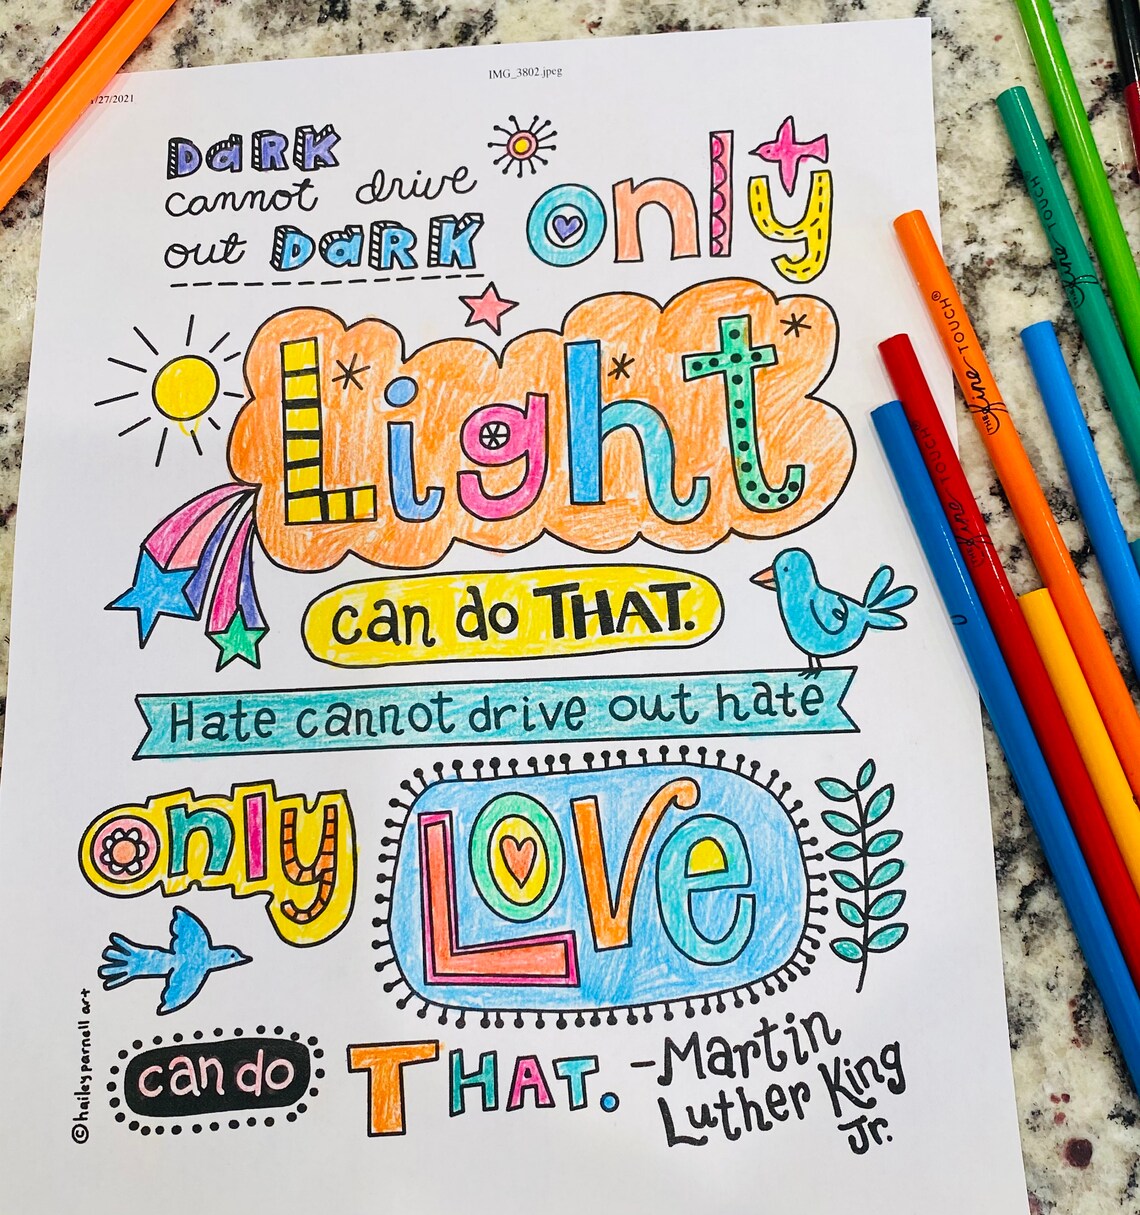 IMG_3802.jpeg
/27/2021
DaRK
cannot drive
out DaRK only
Light
can do THAT.
Hate cannot drive out hate
only LOVe
can do THAT. -Martin
Luther King
Jr.
©haileyparnell art
THE fine TOUCH®
THE fine TOUCH®
THE fine TOUCH®